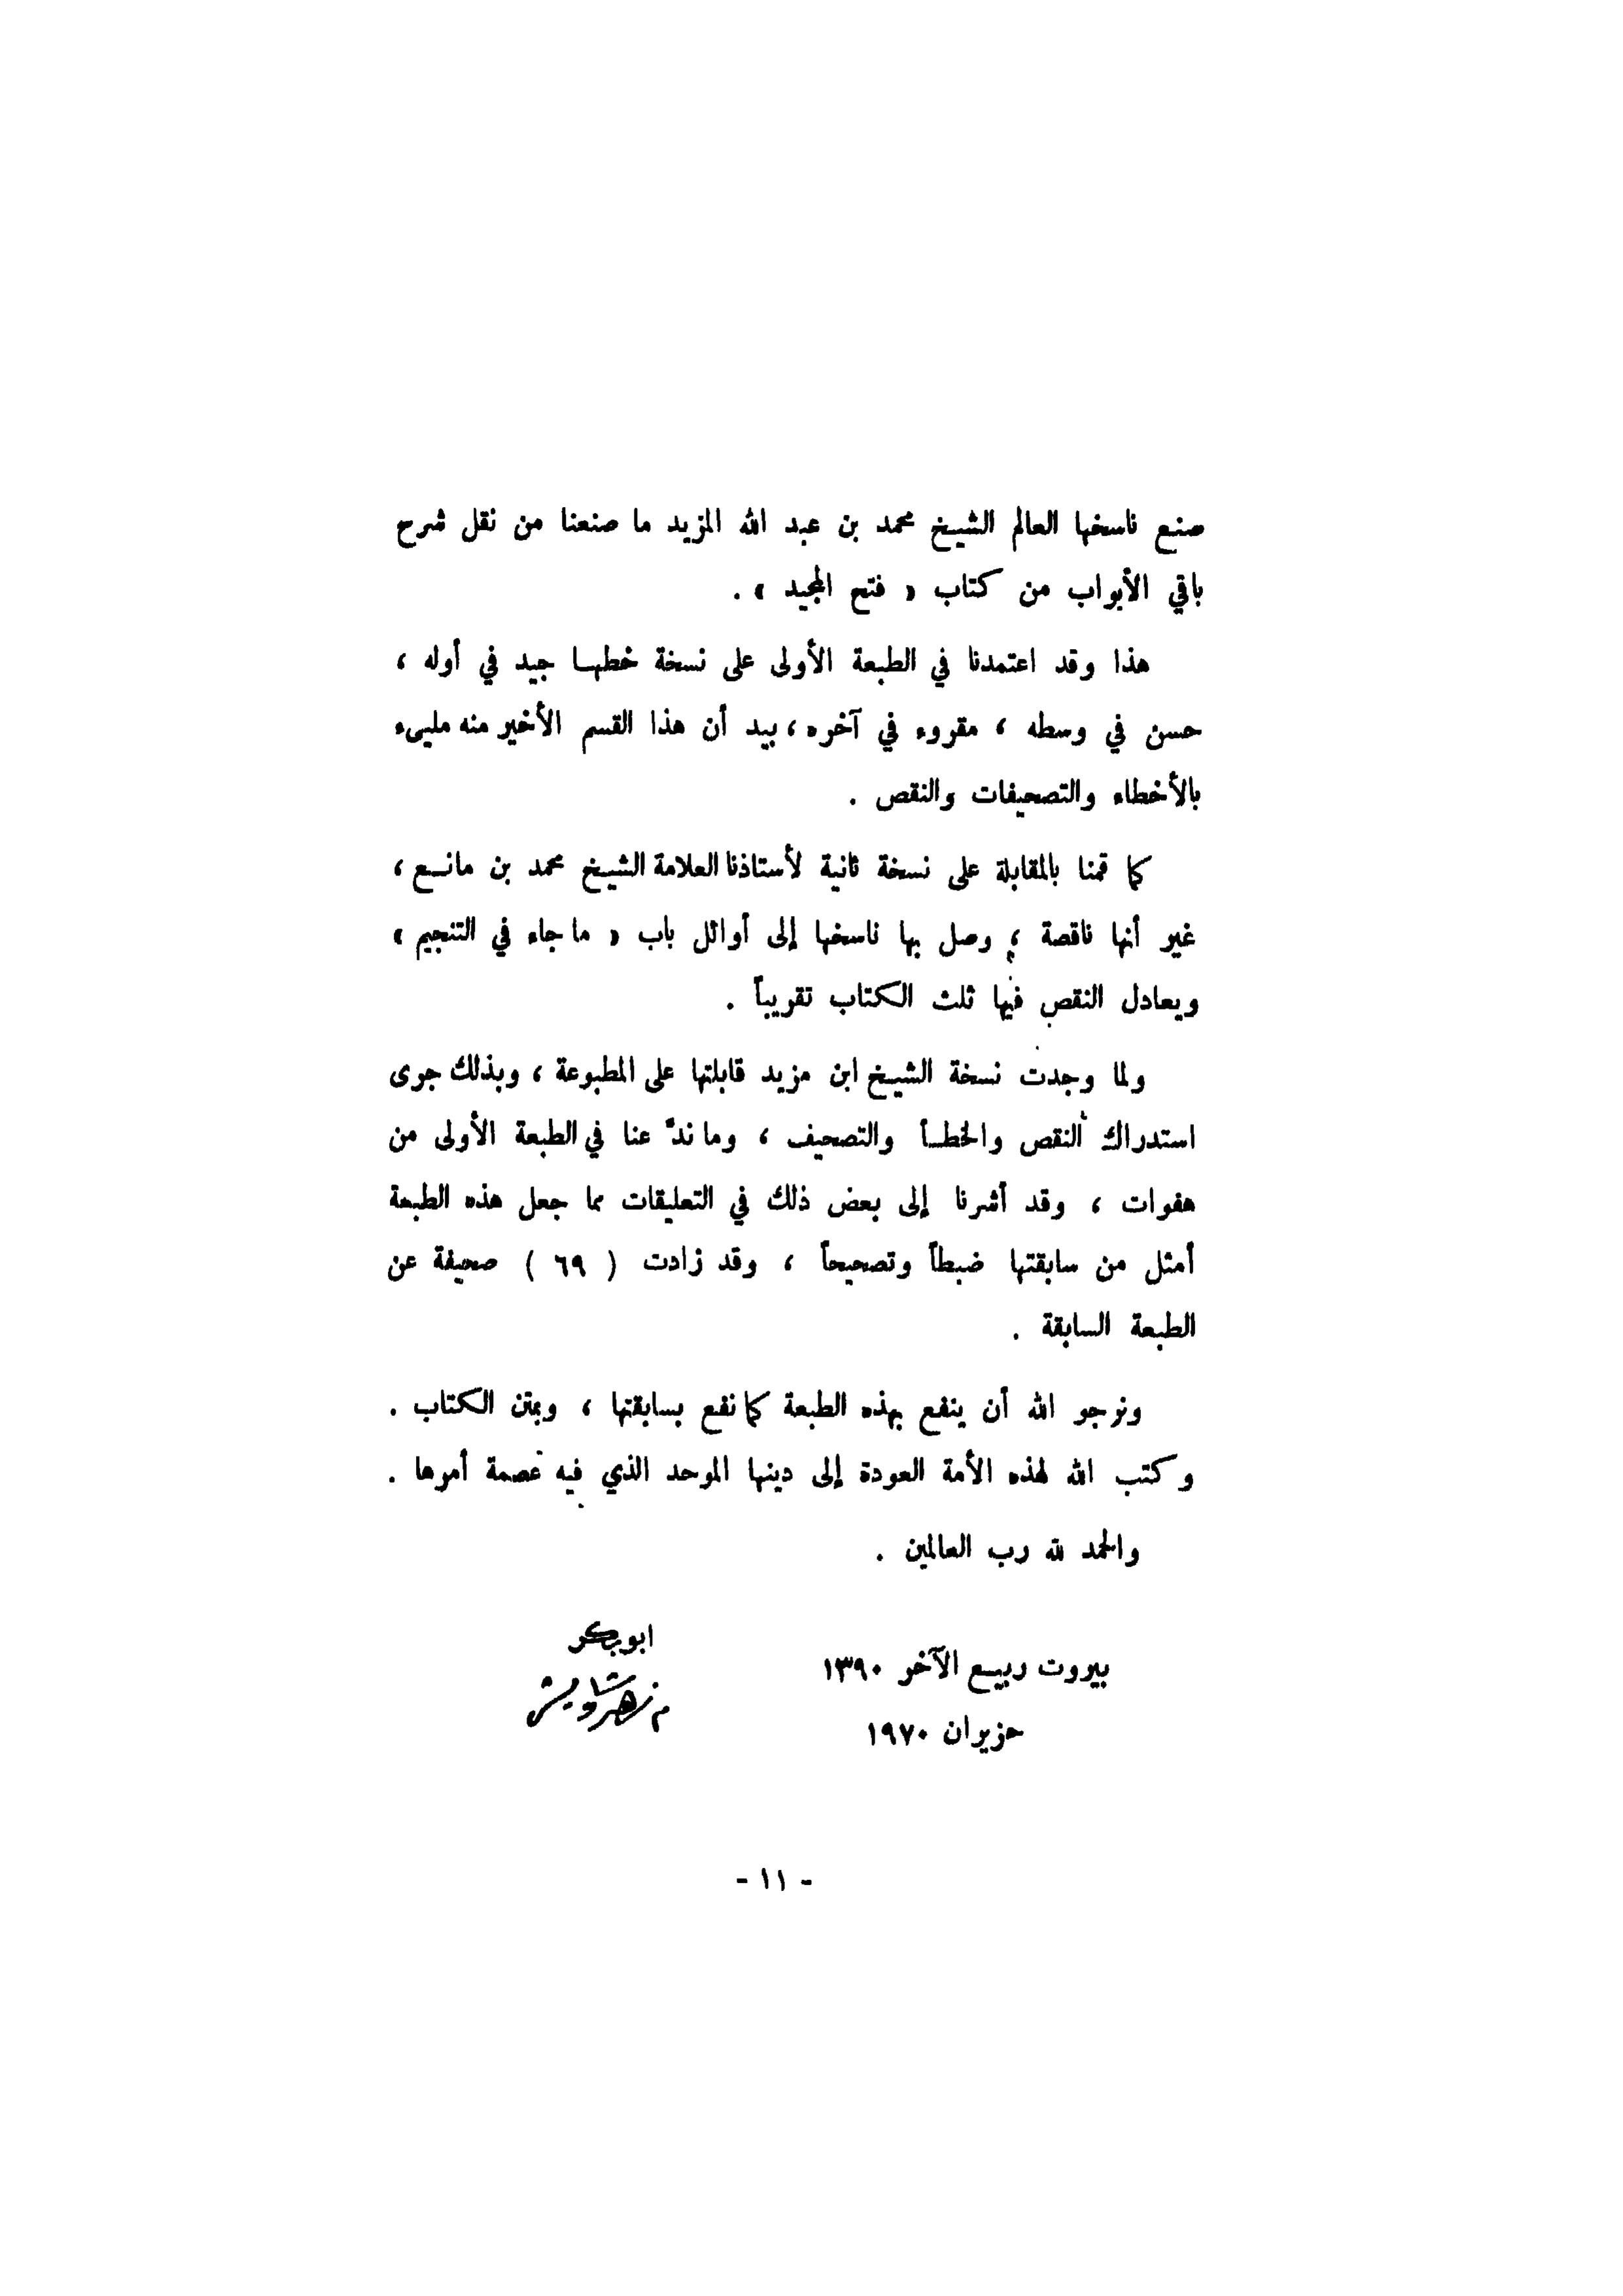 صنع ناسخها العالم الشيخ محمد بن عبد الله المزيد ما صنعنا من نقل شرح
باقي الأبواب من كتاب « فتح المجيد » .
هذا وقد اعتمدنا في الطبعة الأولى على نسخة خطها جيد في أوله ،
حسن في وسطه ، مقروء في آخره ، بيد أن هذا القسم الأخير منه مليىء
بالأخطاء والتصحيفات والنقص .
كما قمنا بالمقابلة على نسخة ثانية لأستاذنا العلامة الشيخ محمد بن مانع ،
غير أنها ناقصة ، وصل بها ناسخها إلى أوائل باب « ما جاء في التنجيم »
ويعادل النقص فيها ثلث الكتاب تقريباً .
ولما وجدت نسخة الشيخ ابن مزيد قابلتها على المطبوعة ، وبذلك جرى
استدراك النقص والخطأ والتصحيف ، وما ندّ عنا في الطبعة الأولى من
هفوات ، وقد أشرنا إلى بعض ذلك في التعليقات مما جعل هذه الطبعة
أمثل من سابقتها ضبطاً وتصحيحاً ، وقد زادت ( ٦٩ ) صحيفة عن
الطبعة السابقة .
ونرجو الله أن ينفع بهذه الطبعة كما نفع بسابقتها ، وبمتن الكتاب .
وكتب الله لهذه الأمة العودة إلى دينها الموحد الذي فيه عصمة أمرها .
والحمد لله رب العالمين .
ابوبكر
بيروت ربيع الآخر ١٣٩٠
زهير شاويش
حزيران ١٩٧٠
- ١١ -